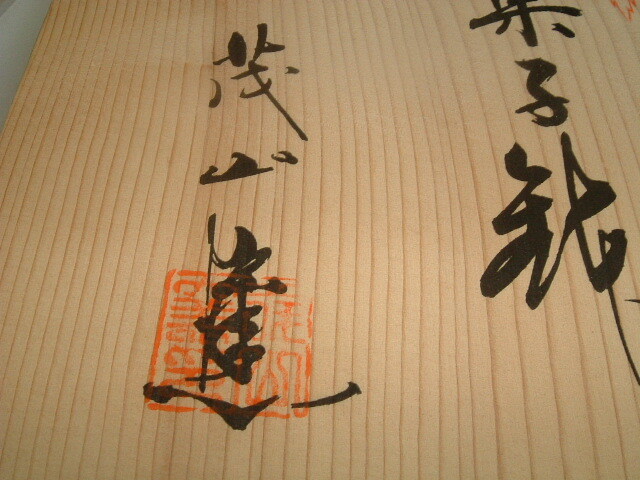 菓子鉢
茂山造